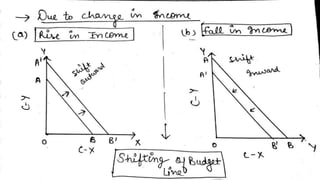 → Due to change in Income
(a) Rise in Income
(b) Fall in Income
Y
A'
A
Shift
outward
C-Y
O
B
B'
X
C-X
Y
A
A'
Shift
Inward
C-Y
O
B'
B
Y
C-X
Shifting of Budget
Line